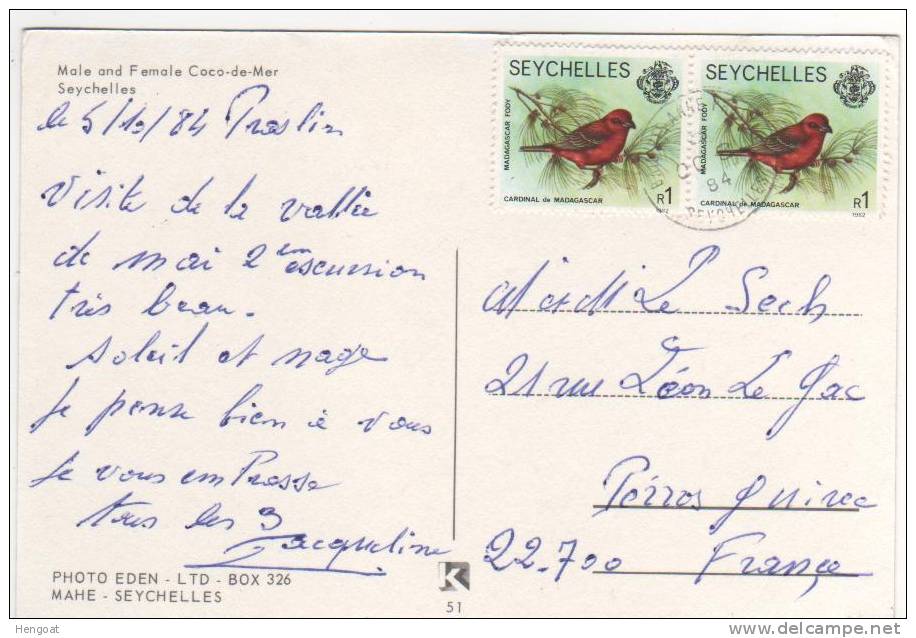 Male and Female Coco-de-Mer
Seychelles
le 5/10/84 Praslin
Visite de la vallée
de mai 2em escursion
très beau.
soleil et nage
Je pense bien à vous
Je vous embrasse
tous les 3
Jacqueline
PHOTO EDEN - LTD - BOX 326
MAHE - SEYCHELLES
51
K
SEYCHELLES
MADAGASCAR FODY
CARDINAL de MADAGASCAR
R1
1982
SEYCHELLES
MADAGASCAR FODY
CARDINAL de MADAGASCAR
R1
1982
84
SEYCHELLES
M et M Le Sech
21 rue Léon Le Gac
Perros Guirec
22.700 France
Hengoat
delcampe.net